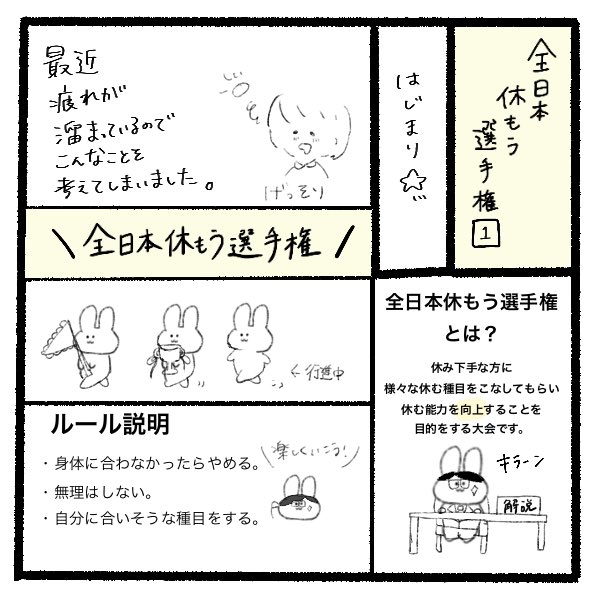 全日本
休もう
選手権
1
はじまり☆
最近
疲れが
溜まっているので
こんなことを
考えてしまいました。
げっそり
\全日本休もう選手権/
←行進中
ルール説明
・身体に合わなかったらやめる。
・無理はしない。
・自分に合いそうな種目をする。
\楽しくいこう!/
全日本休もう選手権
とは?
休み下手な方に
様々な休む種目をこなしてもらい
休む能力を向上することを
目的をする大会です。
キラーン
解説